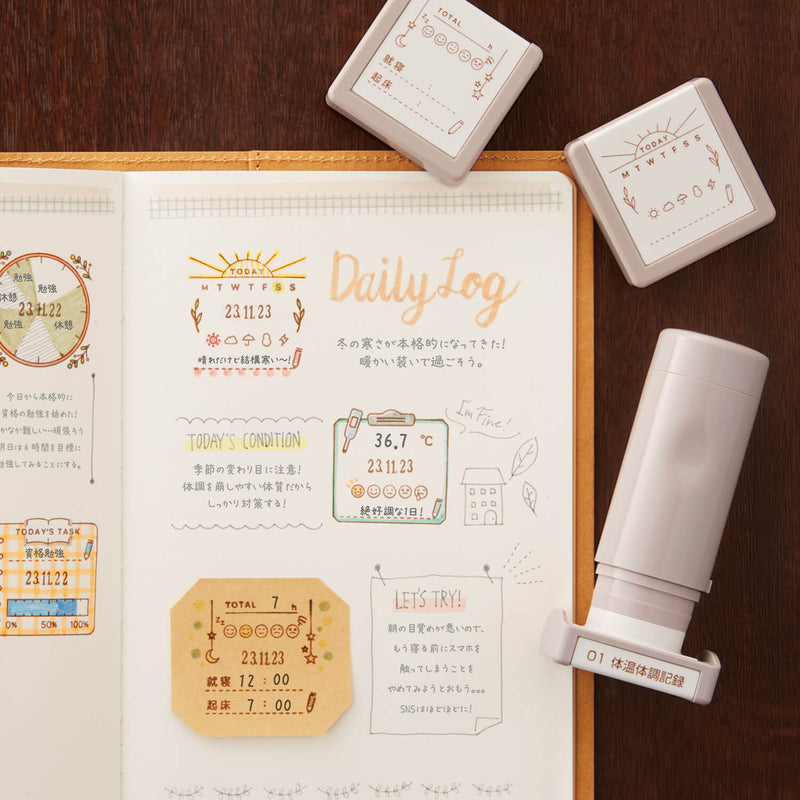 TOTAL
h
zz
就寝 :
起床 :
TODAY
M T W T F S S
01 体温体調記録
勉強
勉強
休憩
23.11.22
勉強
休憩
今日から本格的に
資格の勉強を始めた!
かなか難しい…頑張ろう
明日は6時間を目標に
勉強してみることにする。
TODAY'S TASK
資格勉強
23.11.22
0% 50% 100%
TODAY
M T W T F S S
23.11.23
晴れだけど結構寒い〜!
Daily Log
冬の寒さが本格的になってきた!
暖かい装いで過ごそう。
TODAY'S CONDITION
季節の変わり目に注意!
体調を崩しやすい体質だから
しっかり対策する!
36.7 ℃
23.11.23
絶好調な1日!
I'm Fine!
TOTAL 7 h
zz
23.11.23
就寝 12:00
起床 7:00
LET'S TRY!
朝の目覚めが悪いので、
もう寝る前にスマホを
触ってしまうことを
やめてみようとおもう。。。
SNSはほどほどに!